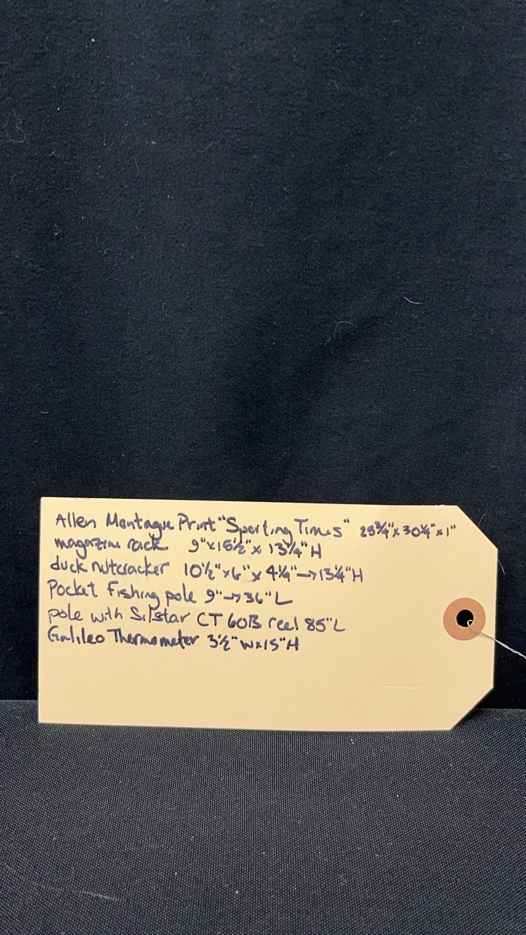 Allen Montague Print "Sporting Times" 25¾" x 30¼" x 1"
magazine rack 9" x 15½" x 13¼" H
duck nutcracker 10½" x 6" x 4¼" → 13¼" H
Pocket Fishing pole 9" → 36" L
pole with Silstar CT 60B reel 85" L
Galileo Thermometer 3½" W x 15" H